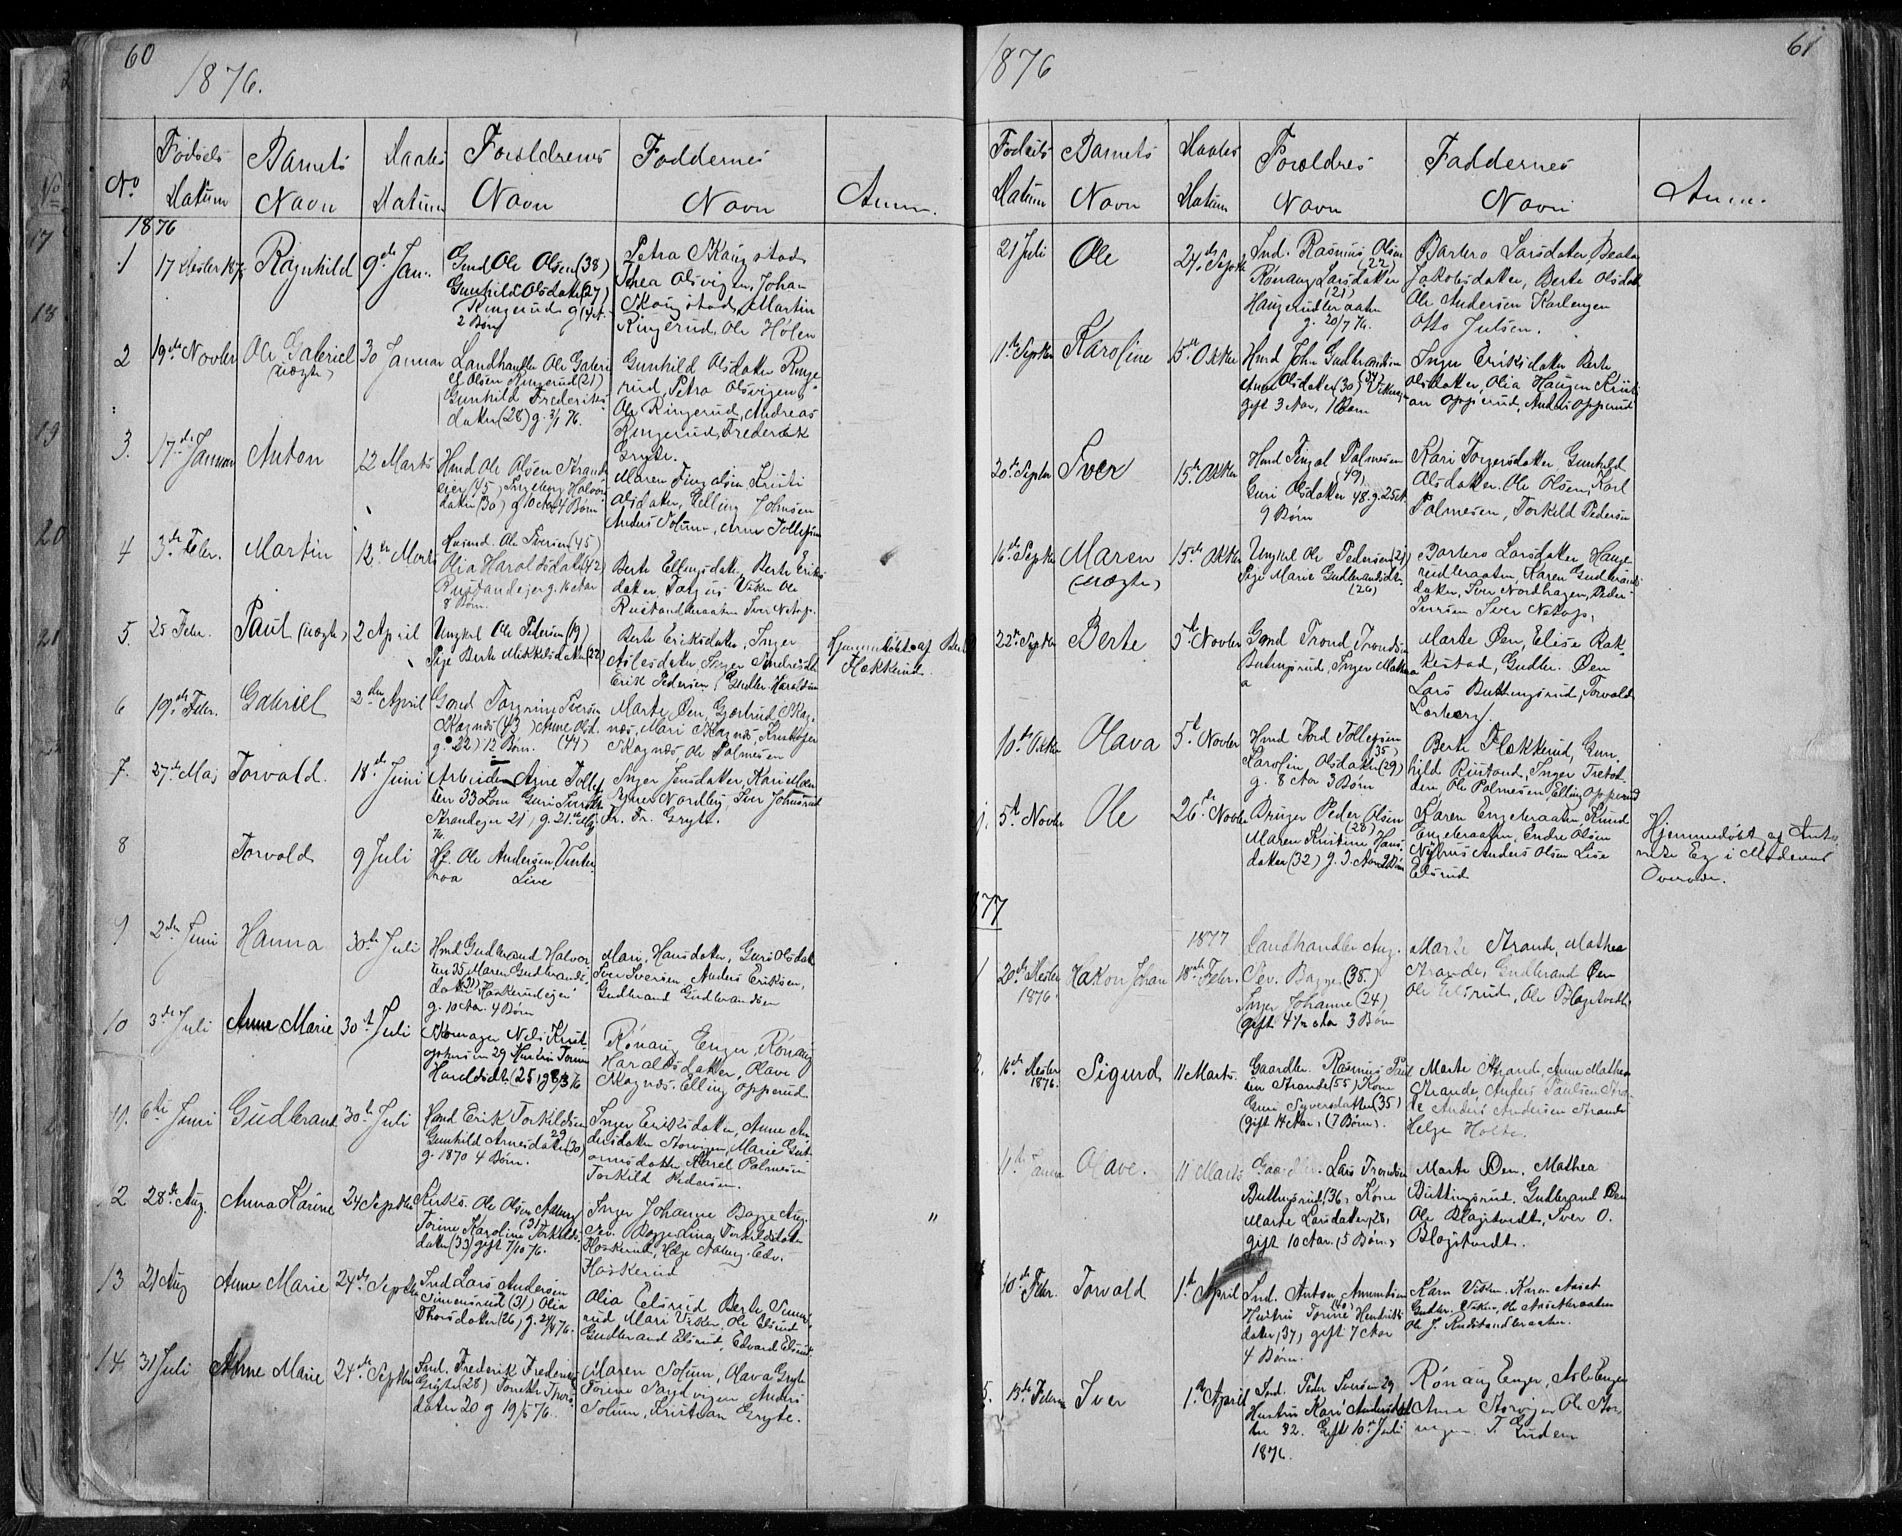 60
1876.
No
Fødsels Datum
Barnets Navn
Daabs Datum
Forældrenes Navn
Faddernes Navn
Anm.
1876
1
17 Desber 187
Ragnhild
9de Jan.
Gmd Ole Olsen (38)
Gunhild Olsdatter (27)
Ringerud g
2 Børn
Petra Skaugstad
Thea Olsvigen, Johan
Skaugstad, Martin
Ringerud, Ole Hølen
2
19de Novber
Ole Gabriel
(uægte)
30 Januar
Landhandler Ole Gabri
el Olsen Ringerud (21)
Gunhild Frederiks
datter (28) g. 3/1 76.
Gunhild Olsdatter Ringe
rud, Petra Olsvigen,
Ole Ringerud, Andreas
Ringerud, Frederik
Gryte.
3.
17de Januar
Anton
12 Marts
Hmd Ole Olsen Strande
eier (45) Ingeborg Halvors
datter (30) g 10 Aar 4 Børn
Maren Fingalsen, Kristi
Olsdatter, Elling Johnsen
Anders Solum, Arne Tollefsen
4
3de Febr.
Martin
12te Marts
Husmd. Ole Iversen (45)
Olia Haraldsdatter (42)
Rustandeier g. 16 Aar
8 Børn.
Berte Ellingsdatter, Berte Eriks
datter, Torgrus Viken Ole
Rustandbraaten Iver Netop.
5
25 Febr.
Paul (uægte)
2 April
Ungkrl Ole Pedersen (19)
Pige Berte Mikkelsdatter (22)
Berte Eriksdatter, Inger
Aslesdatter Inger Andreasdt
Erik Pedersen, Gudbr. Haraldsen
Hjemmedøbt af Berte
Flækkerud.
6
19de Febr.
Gabriel
2den April
Gmd Torgrim Iversen
Skagnæs (43) Anne Olsd.
g. 22) 12 Børn. (44)
Marte Øen, Gjertrud Skag
næs, Mari Skagnæs, Kristofer
Skagnæs, Ole Palmesen
7.
27de Maj
Torvald.
18de Juni
Arbeider Arne Tollef
sen 33 Lom Guri Iversdt
Strandeger 21, g. 21de Maj
76.
Inger Jensdatter, Kari Moen
Syver Nordby, Iver Johnsrud
Fr. Fr. Gryte.
8
Torvald
9 Juli
Hf. Ole Andersen Vinter
roa Live
9
2den Juni
Hanna
30te Juli
Hmd Gudbrand Halvor
sen 35 Maren Gudbrands
datter (31) Haskerudeger
g. 10 Aar. 4 Børn
Mari Hansdatter, Guri Olsdat
Iver Iversen, Anders Eriksen,
Gudbrand Gudbrandsen
10
3de Juli
Anne Marie
30te Juli
Skomager Nels Krist
ofersen 29 Hustru Torine
Haraldsdt. (25) g 8/3 76
Rönaug Enger, Rönaug
Haraldsdatter, Olave
Skagnæs, Elling Opperud
11.
6te Juni
Gudbrand
30te Juli
Hmd Erik Torkildsen
29
Gunhild Arnesdatter (30)
g. 1870 4 Børn.
Inger Eriksdatter, Anne An
dersdatter Storvigen, Marie Gut
ormsdatter, Karel Palmesen
Torkild Pedersen.
2
28de Aug.
Anna Karine
24 Septbr
Kirks. Ole Olsen Aaberg
(31)
Torine Karoline Torkilds
datter (33) gift 7/10 76.
Inger Johanne Bagge Aug.
Sev. Bagge Lina Torkildsdatter
Haskerud, Helge Aaberg. Edv.
Haskerud
"
13
21 Aug
Anne Marie
24de Septbr
Ind Lars Andersen
Simensrud (31) Olia
Thorsdatter (26) g. 24/9 76.
Olia Elsrud Berte Simens
rud Mari Viken, Ole Elsrud
Gudbrand Elsrud, Edvard Elsrud
14
31 Juli
Anne Marie
24de Septbr
Ind. Frederik Frederiks
Gryte (28) Toneth Thors
datter 20 g 19/5 76.
Maren Solum, Olava Gryte
Torine Sandvigen Anders
Solum, Kristian Gryte.
1876
61
Fødsels Datum
Barnets Navn
Daabs Datum
Forældres Navn
Faddernes Navn
Anm.
21 Juli
Ole
24de Septbr
Ind. Rasmus Olsen
(22)
Rönaug Larsdatter
(21)
Haugerudbraaten
g. 20/7 76.
Barbro Larsdatter Beata
Jakobsdatter, Berte Olsdat
Ole Andersen Karlengen
Otto Julsen.
11te Septbr
Karoline
15de Oktbr
Hmd John Gudbrandsen
Anne Olsdatter (30) (34) Viken
gift 3 Aar, 1 Barn
Inger Eriksdatter Berte
Olsdatter, Olia Haugen Kristi
an Opperud, Anders Opperud
30te Septbr
Iver
15de Oktbr
Hmd Fingal Palmesen
(49)
Guri Olsdatter 48. g. 25 A.
9 Børn
Kari Torgersdatter, Gunhild
Olsdatter. Ole Olsen, Karl
Palmesen, Torkild Pedersen
16de Septbr
Maren
(uægte)
15de Oktbr
Ungkrl Ole Pedersen (21)
Pige Marie Gudbrandsdt.
(26)
Barbro Larsdatter Hauge
rudbraaten, Karen Gudbrands
datter, Iver Nordhagen, Peder
Iversen Iver Netop.
22de Septbr
Berte
5te Novber
Gmd Trond Trondsen
Butingsrud, Inger Mathea
Marte Øen, Elise Rak
kestad, Gudbr. Øen
Lars Buttingsrud, Torvald
Lorberg.
10de Oktbr
Olava
5te Novbr
Hmd Tord Tollefsen
(35)
Karolin Olsdatter (29)
g. 8 Aar 3 Børn
Berte Flækkerud, Gun
hild Rustand, Inger Tretot
den Ole Palmesen, Elling Opperud
5te Novbr
Ole
26de Novbr
Bruger Peder Olsen
(20)
Maren Kristine Hans
datter (32) g. 3. Aar 2 Børn
Karen Engebraaten, Knud
Engebraaten, Endre Olsen
Nyhus Anders Olsen Lise
Elsrud
Hjemmedøbt af Ant
nete Eg i Moderens
Overvær.
877
20de Desber
1876.
Hakon Johan
1877
18de Febr.
Landhandler Aug.
Sev. Bagge. (38.)
Inger Johanne (24)
gift 4 1/2 Aar 3 Børn
Marte Strande, Mathea
Strande, Gudbrand Øen
Ole Elsrud, Ole Blagstvedt
2.
16de Desber
1876.
Sigurd
11 Marts.
Gaardbr. Rasmus Paul
sen Strande (55) Kone
Guri Syversdatter (35)
(gift 14 Aar, (7 Børn).
Marte Strande, Anne Mathea
Strande, Anders Paulsen Stra
de Anders Andersen Strande
Helge Holte.
11te Januar
Olave.
11 Marts
Gaardbr. Lars Trondsen
Buttingsrud, (36, Kone
Marte Larsdatter, 28,
gift 10 Aar. (5 Børn,
Marte Øen. Mathea
Buttingsrud, Gudbrand Øen
Ole Blagstvedt, Iver O.
Blagstvedt.
10de Febr.
Torvald
1te April
Ind. Anton Amundsen
Hustru Torine Hendriks
datter, 37, gift 7 Aar
4 Børn.
Karn Viken. Karn Aaset
Gudbr. Viken, Ole Aasetbraaten
Ole J. Rustandbraaten.
5.
13de Febru
Iver
1te April
Ind. Peder Iversen 29
Hustru Kari Andersdat
ter 32. Gift 10de Juli
1876.
Rönaug Enger, Asle Enger
Anne Storvigen Ole Stor
vigen. T. Gudem